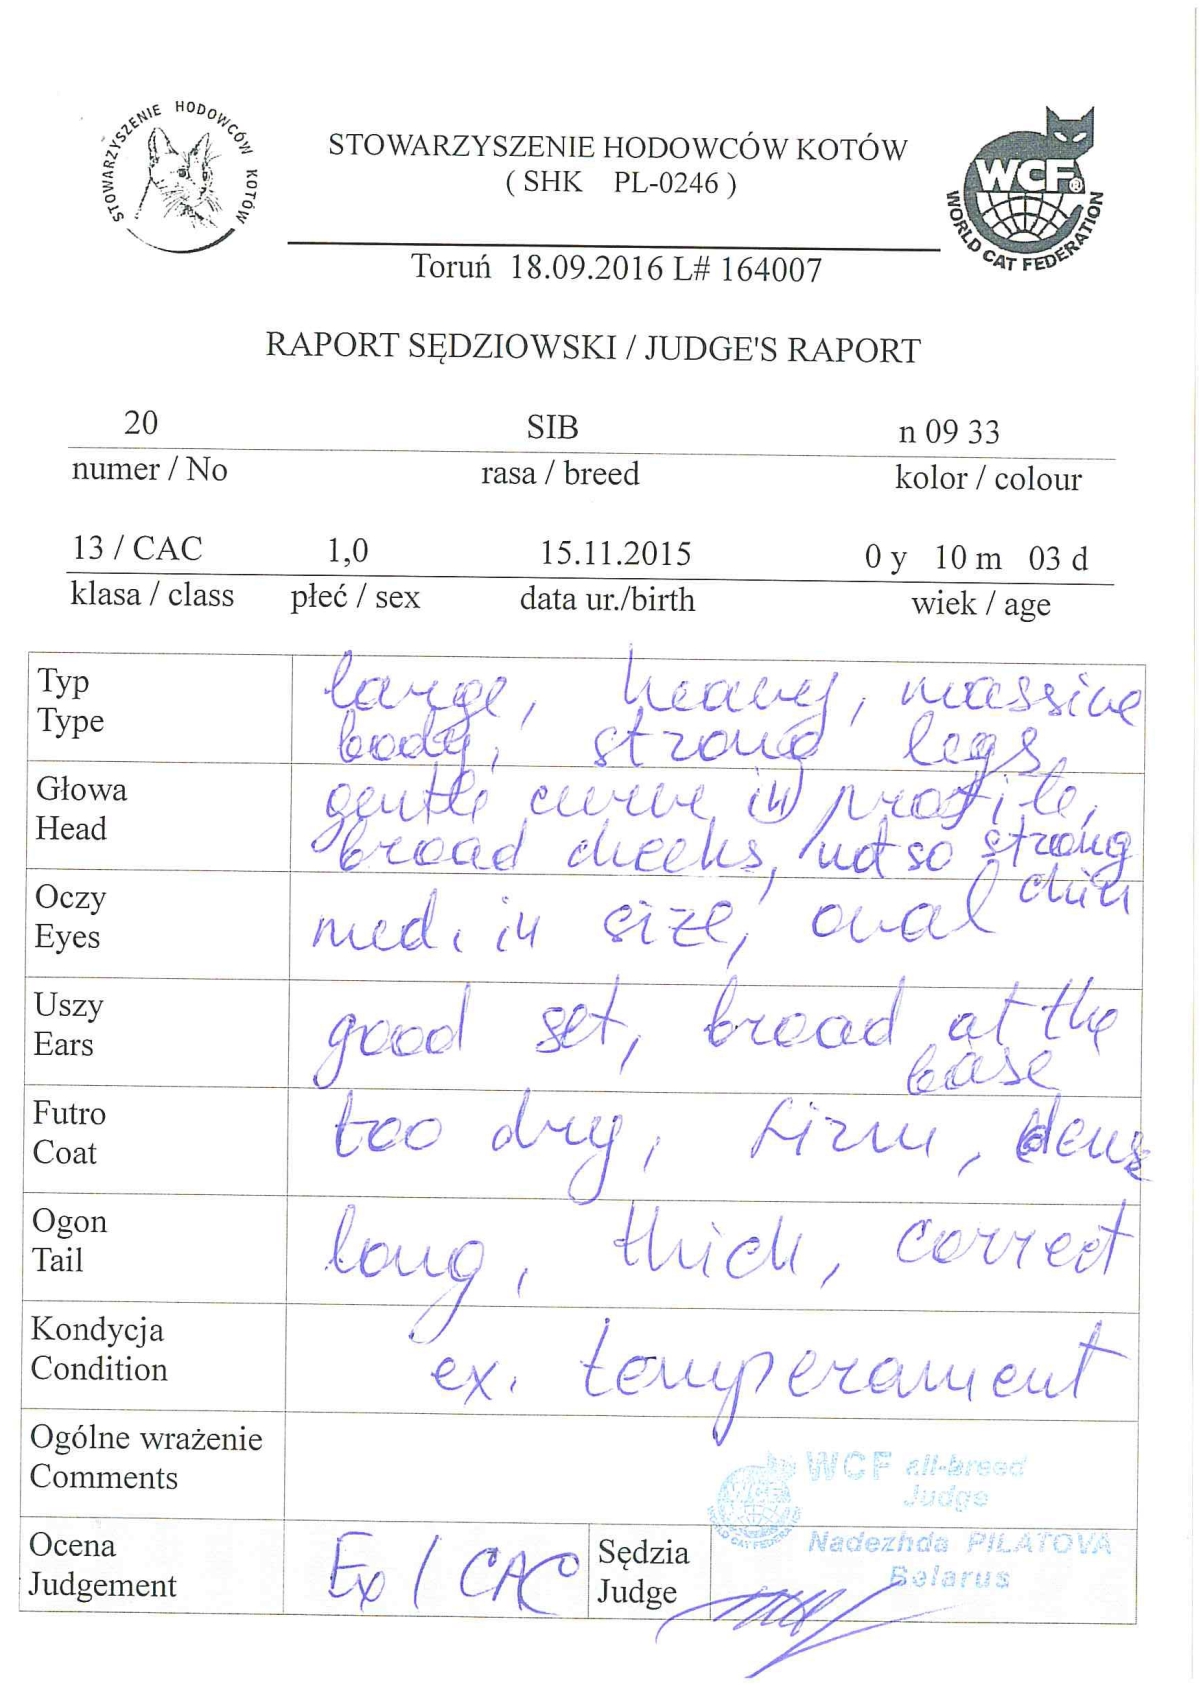 STOWARZYSZENIE HODOWCÓW KOTÓW
STOWARZYSZENIE HODOWCÓW KOTÓW
( SHK PL-0246 )
WCF®
WORLD CAT FEDERATION
Toruń 18.09.2016 L# 164007
RAPORT SĘDZIOWSKI / JUDGE'S RAPORT
20 SIB n 09 33
numer / No rasa / breed kolor / colour
13 / CAC 1,0 15.11.2015 0 y 10 m 03 d
klasa / class płeć / sex data ur./birth wiek / age
Typ
Type
large, heavy, massive
body, strong legs
Głowa
Head
gentle curve in profile,
broad cheeks, not so strong
chin
Oczy
Eyes
med. in size, oval
Uszy
Ears
good set, broad at the
base
Futro
Coat
too dry, firm, dense
Ogon
Tail
long, thick, correct
Kondycja
Condition
ex. temperament
Ogólne wrażenie
Comments
WCF all-breed
Judge
Nadezhda PILATOVA
Belarus
Ocena
Judgement
Ex / CAC
Sędzia
Judge